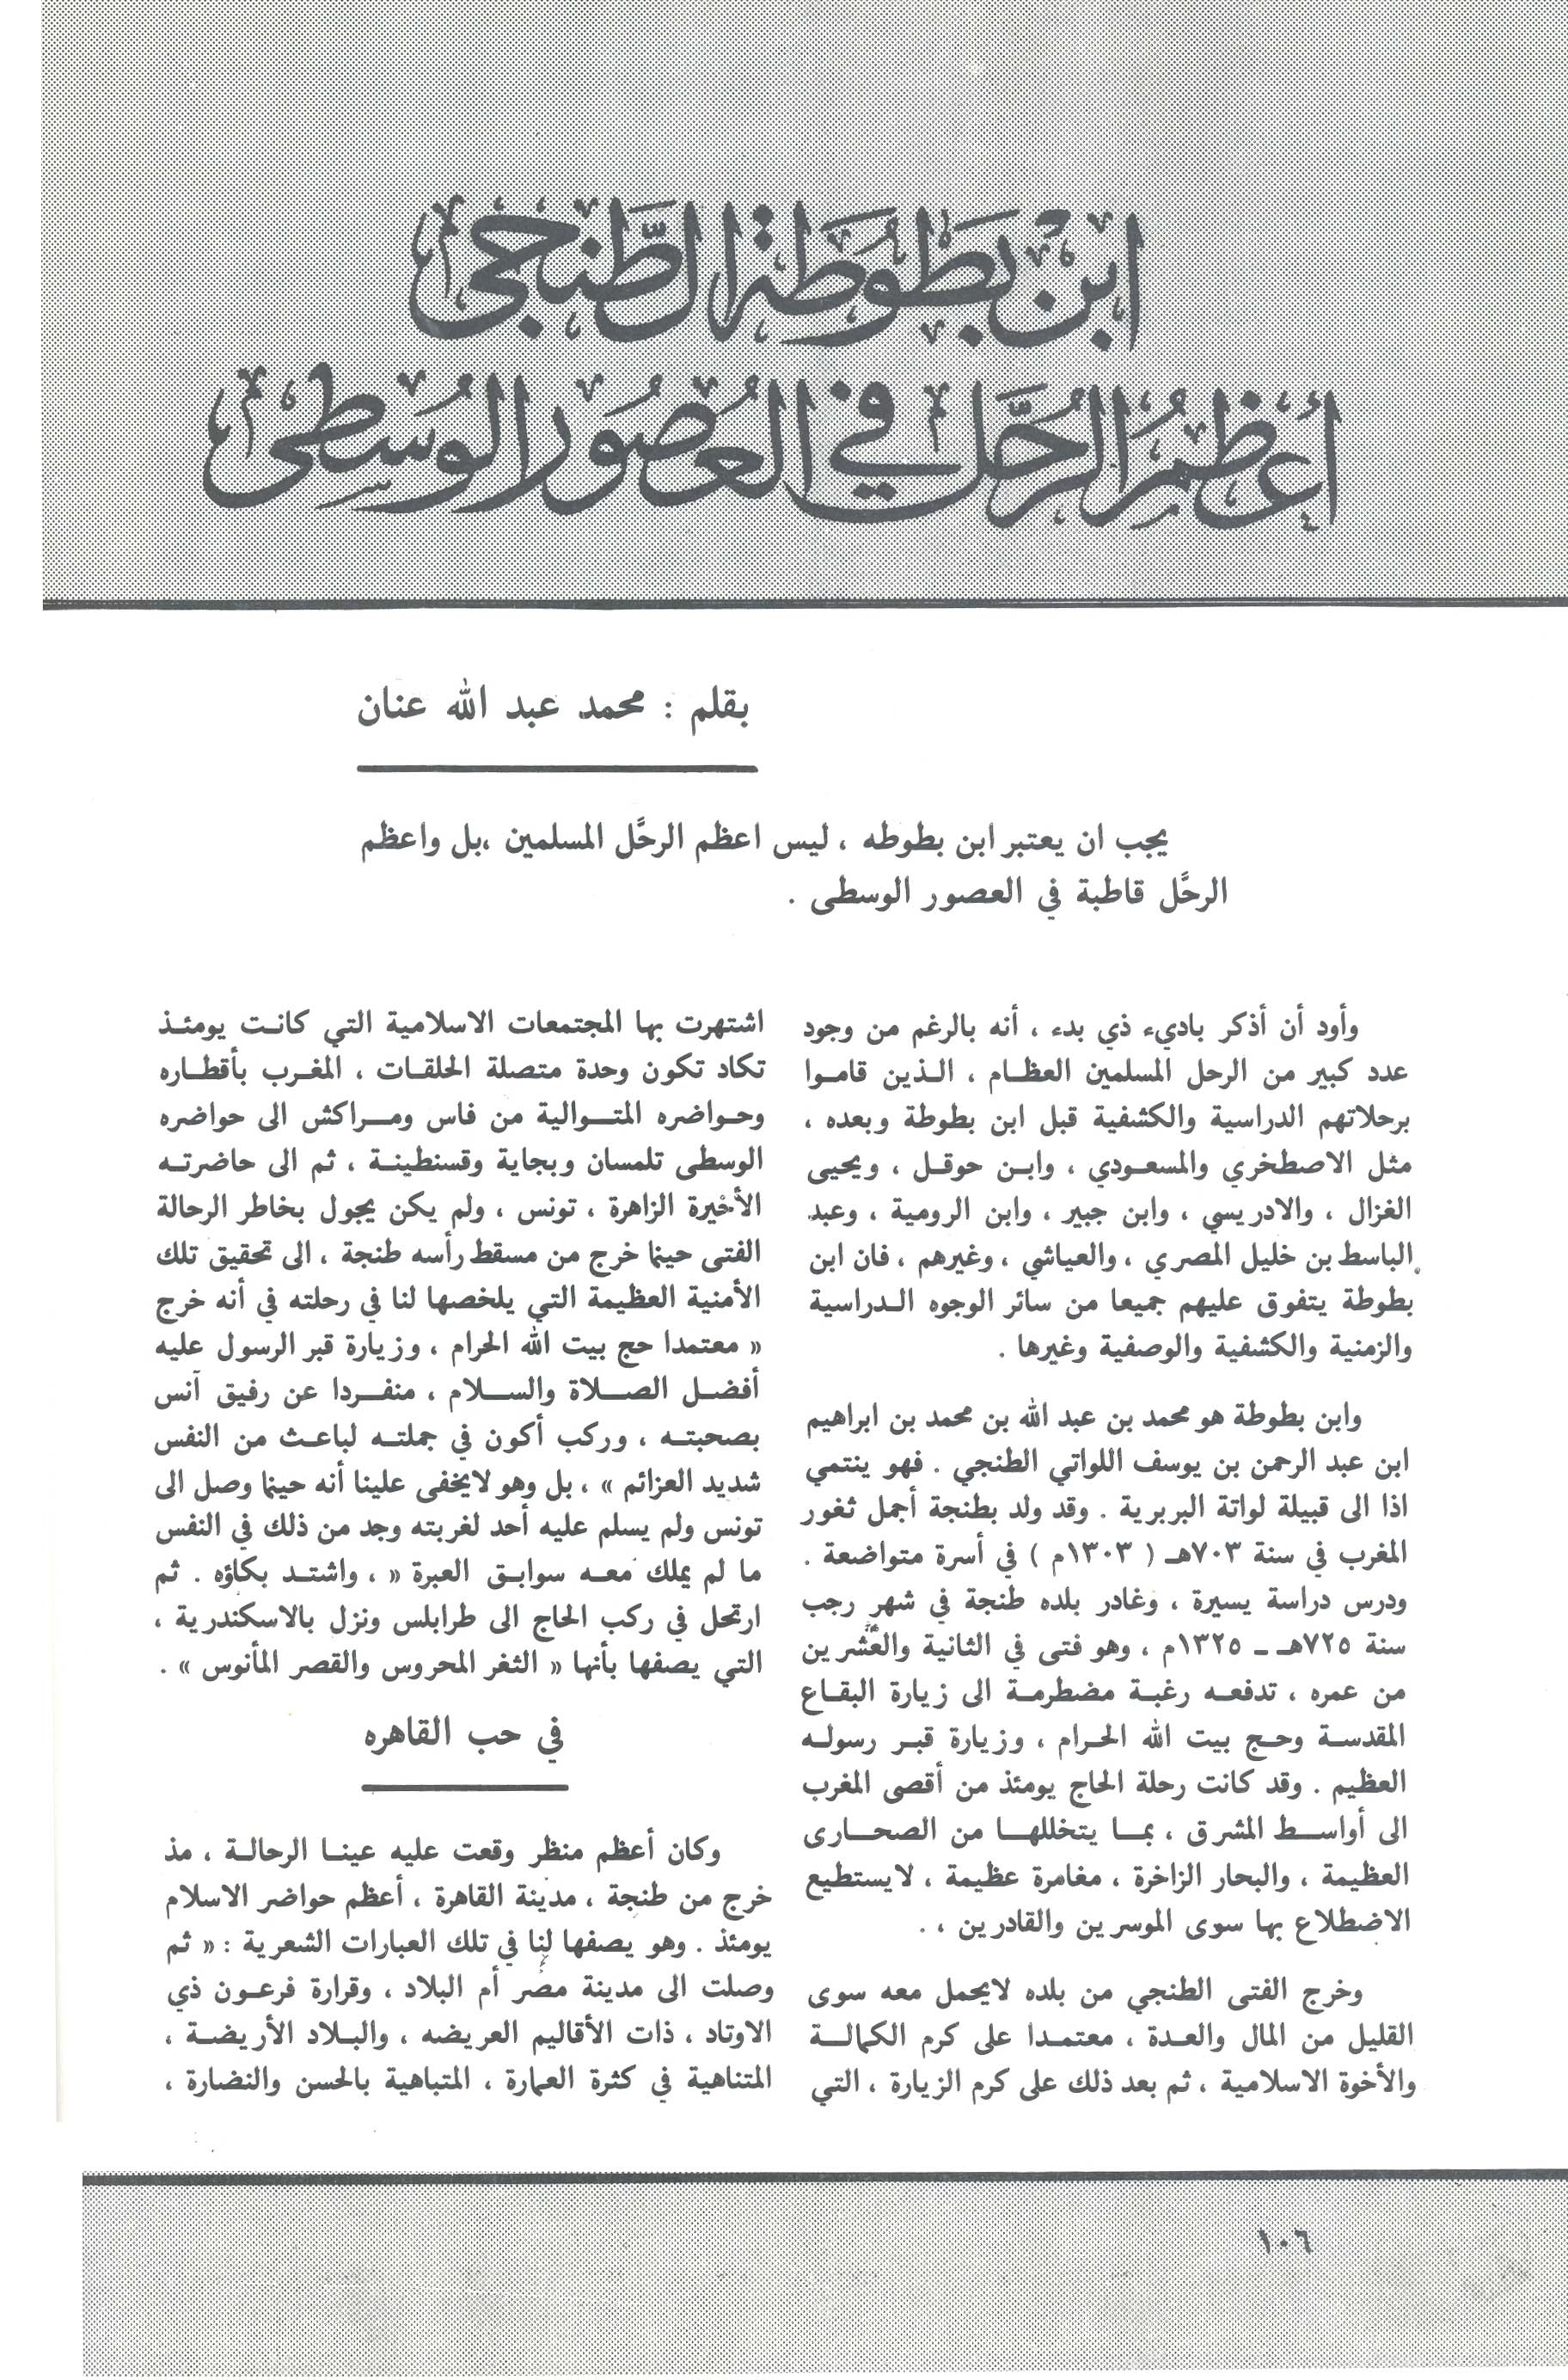 ابن بطوطة الطنجي
أعظم الرحل في العصور الوسطى
بقلم : محمد عبد الله عنان
يجب ان يعتبر ابن بطوطه ، ليس اعظم الرحَّل المسلمين ،بل واعظم
الرحَّل قاطبة في العصور الوسطى .
وأود أن أذكر باديء ذي بدء ، أنه بالرغم من وجود
عدد كبير من الرحل المسلمين العظـام ، الـذين قامـوا
برحلاتهم الدراسية والكشفية قبل ابن بطوطة وبعده ،
مثل الاصطخري والمسعـودي ، وابـن حوقـل ، ويحيى
الغزال ، والادريسي ، وابن جبير ، وابن الرومية ، وعبد
الباسط بن خليل المصري ، والعياشي ، وغيرهم ، فان ابن
بطوطة يتفوق عليهم جميعا من سائر الوجوه الـدراسية
والزمنية والكشفية والوصفية وغيرها .
وابن بطوطة هو محمد بن عبد الله بن محمد بن ابراهيم
ابن عبد الرحمن بن يوسف اللواتي الطنجي . فهو ينتمي
اذا الى قبيلة لواتة البربرية . وقد ولد بطنجة أجمل ثغور
المغرب في سنة ٧٠٣هـ ( ١٣٠٣م ) في أسرة متواضعة .
ودرس دراسة يسيرة ، وغادر بلده طنجة في شهر رجب
سنة ٧٢٥هـ ـ ١٣٢٥م ، وهو فتى في الثانية والعشرين
من عمره ، تدفعـه رغبـة مضطرمـة الى زيارة البقـاع
المقدسـة وحـج بيت الله الحـرام ، وزيارة قبـر رسولـه
العظيم . وقد كانت رحلة الحاج يومئذ من أقصى المغرب
الى أواســط المشرق ، بمـا يتخللهـا من الصحـارى
العظيمة ، والبحار الزاخرة ، مغامرة عظيمة ، لايستطيع
الاضطلاع بها سوى الموسرين والقادرين ، .
وخرج الفتى الطنجي من بلده لايحمل معه سوى
القليل من المال والعدة ، معتمـدا على كرم الكمالـة
والأخوة الاسلامية ، ثم بعد ذلك على كرم الزيارة ، التي
اشتهرت بها المجتمعات الاسلامية التي كانـت يومئـذ
تكاد تكون وحدة متصلة الحلقـات ، المغـرب بأقطـاره
وحـواضره المتـوالية من فاس ومـراكش الى حواضره
الوسطى تلمسان وبجاية وقسنطينـة ، ثم الى حاضرتـه
الأخيرة الزاهرة ، تونس ، ولم يكن يجول بخاطر الرحالة
الفتى حينما خرج من مسقط رأسه طنجة ، الى تحقيق تلك
الأمنية العظيمة التي يلخصها لنا في رحلته في أنه خرج
« معتمدا حج بيت الله الحرام ، وزيارة قبر الرسول عليه
أفضـل الصـلاة والسـلام ، منفـردا عن رفيق آنس
بصحبتـه ، وركب أكون في جملتـه لباعـث من النفس
شديد العزائم » ، بل وهو لايخفى علينا أنه حينما وصل الى
تونس ولم يسلم عليه أحد لغربته وجد من ذلك في النفس
ما لم يملك معـه سوابـق العبرة « ، واشتـد بكاؤه . ثم
ارتحل في ركب الحاج الى طرابلس ونزل بالاسكندرية ،
التي يصفها بأنها « الثغر المحروس والقصر المأنوس » .
في حب القاهره
وكان أعظم منظر وقعت عليه عينـا الرحالـة ، مذ
خرج من طنجة ، مدينة القاهرة ، أعظم حواضر الاسلام
يومئذ . وهو يصفها لنا في تلك العبارات الشعرية : « ثم
وصلت الى مدينة مصر أم البلاد ، وقرارة فرعـون ذي
الاوتاد ، ذات الأقاليم العريضه ، والبـلاد الأريضـة ،
المتناهية في كثرة العمارة ، المتباهية بالحسن والنضارة ،
١٠٦